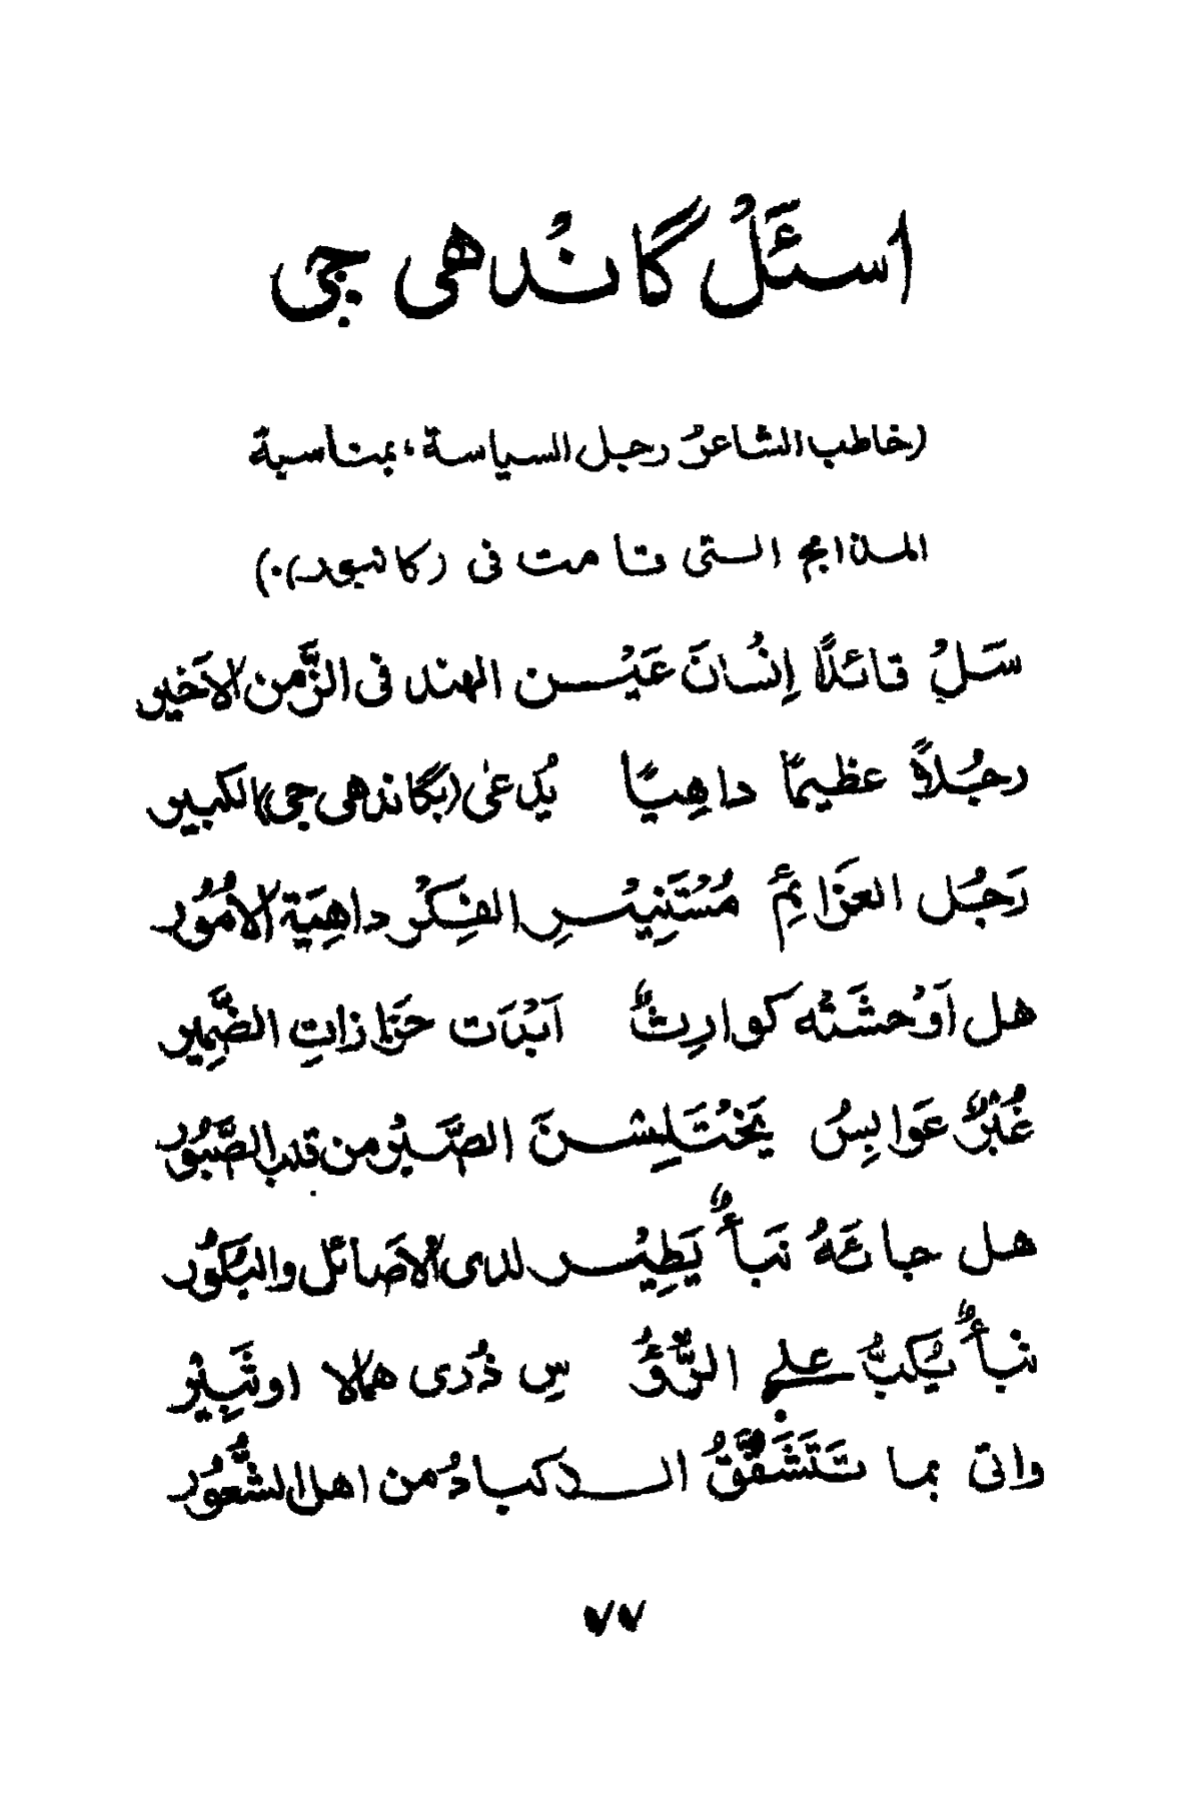 اسئَلُ گانُدهی جی
(خاطب الشاعرُ رجل السياسة، بمناسبة
المذابح التی قامت فی (کانپور).)
سَلُ قائلاً إنُسانَ عَيُن الهند فی الزَّمن الاَخير
رجُلاً عظيمًا داهِيًا يُدعیٰ (بگاندهی جی) الکبير
رَجُل العزائِمُ مُسُتَنِيُرِ الفِکُر داهِيَة الاُمُوُر
هل اَوُحشَتُه کوارِثٌ اَبُدَت حَزازاتِ الضَّمِير
غُبُرٌ عَوابِسُ يَخُتَلِسُنَ الصَّبُر من قلب الصَّبُوُر
هل جائَهُ نَبأٌ يَطِيُر لدی الاَصَائل والبُکُوُر
نبأٌ يُکبُّ علی الرُّؤُ سِ ذُری همالا اوثَبِيُر
واتی بما تَتَشَقَّقُ الاکبادُ من اهل الشُّعُوُر
٧٧